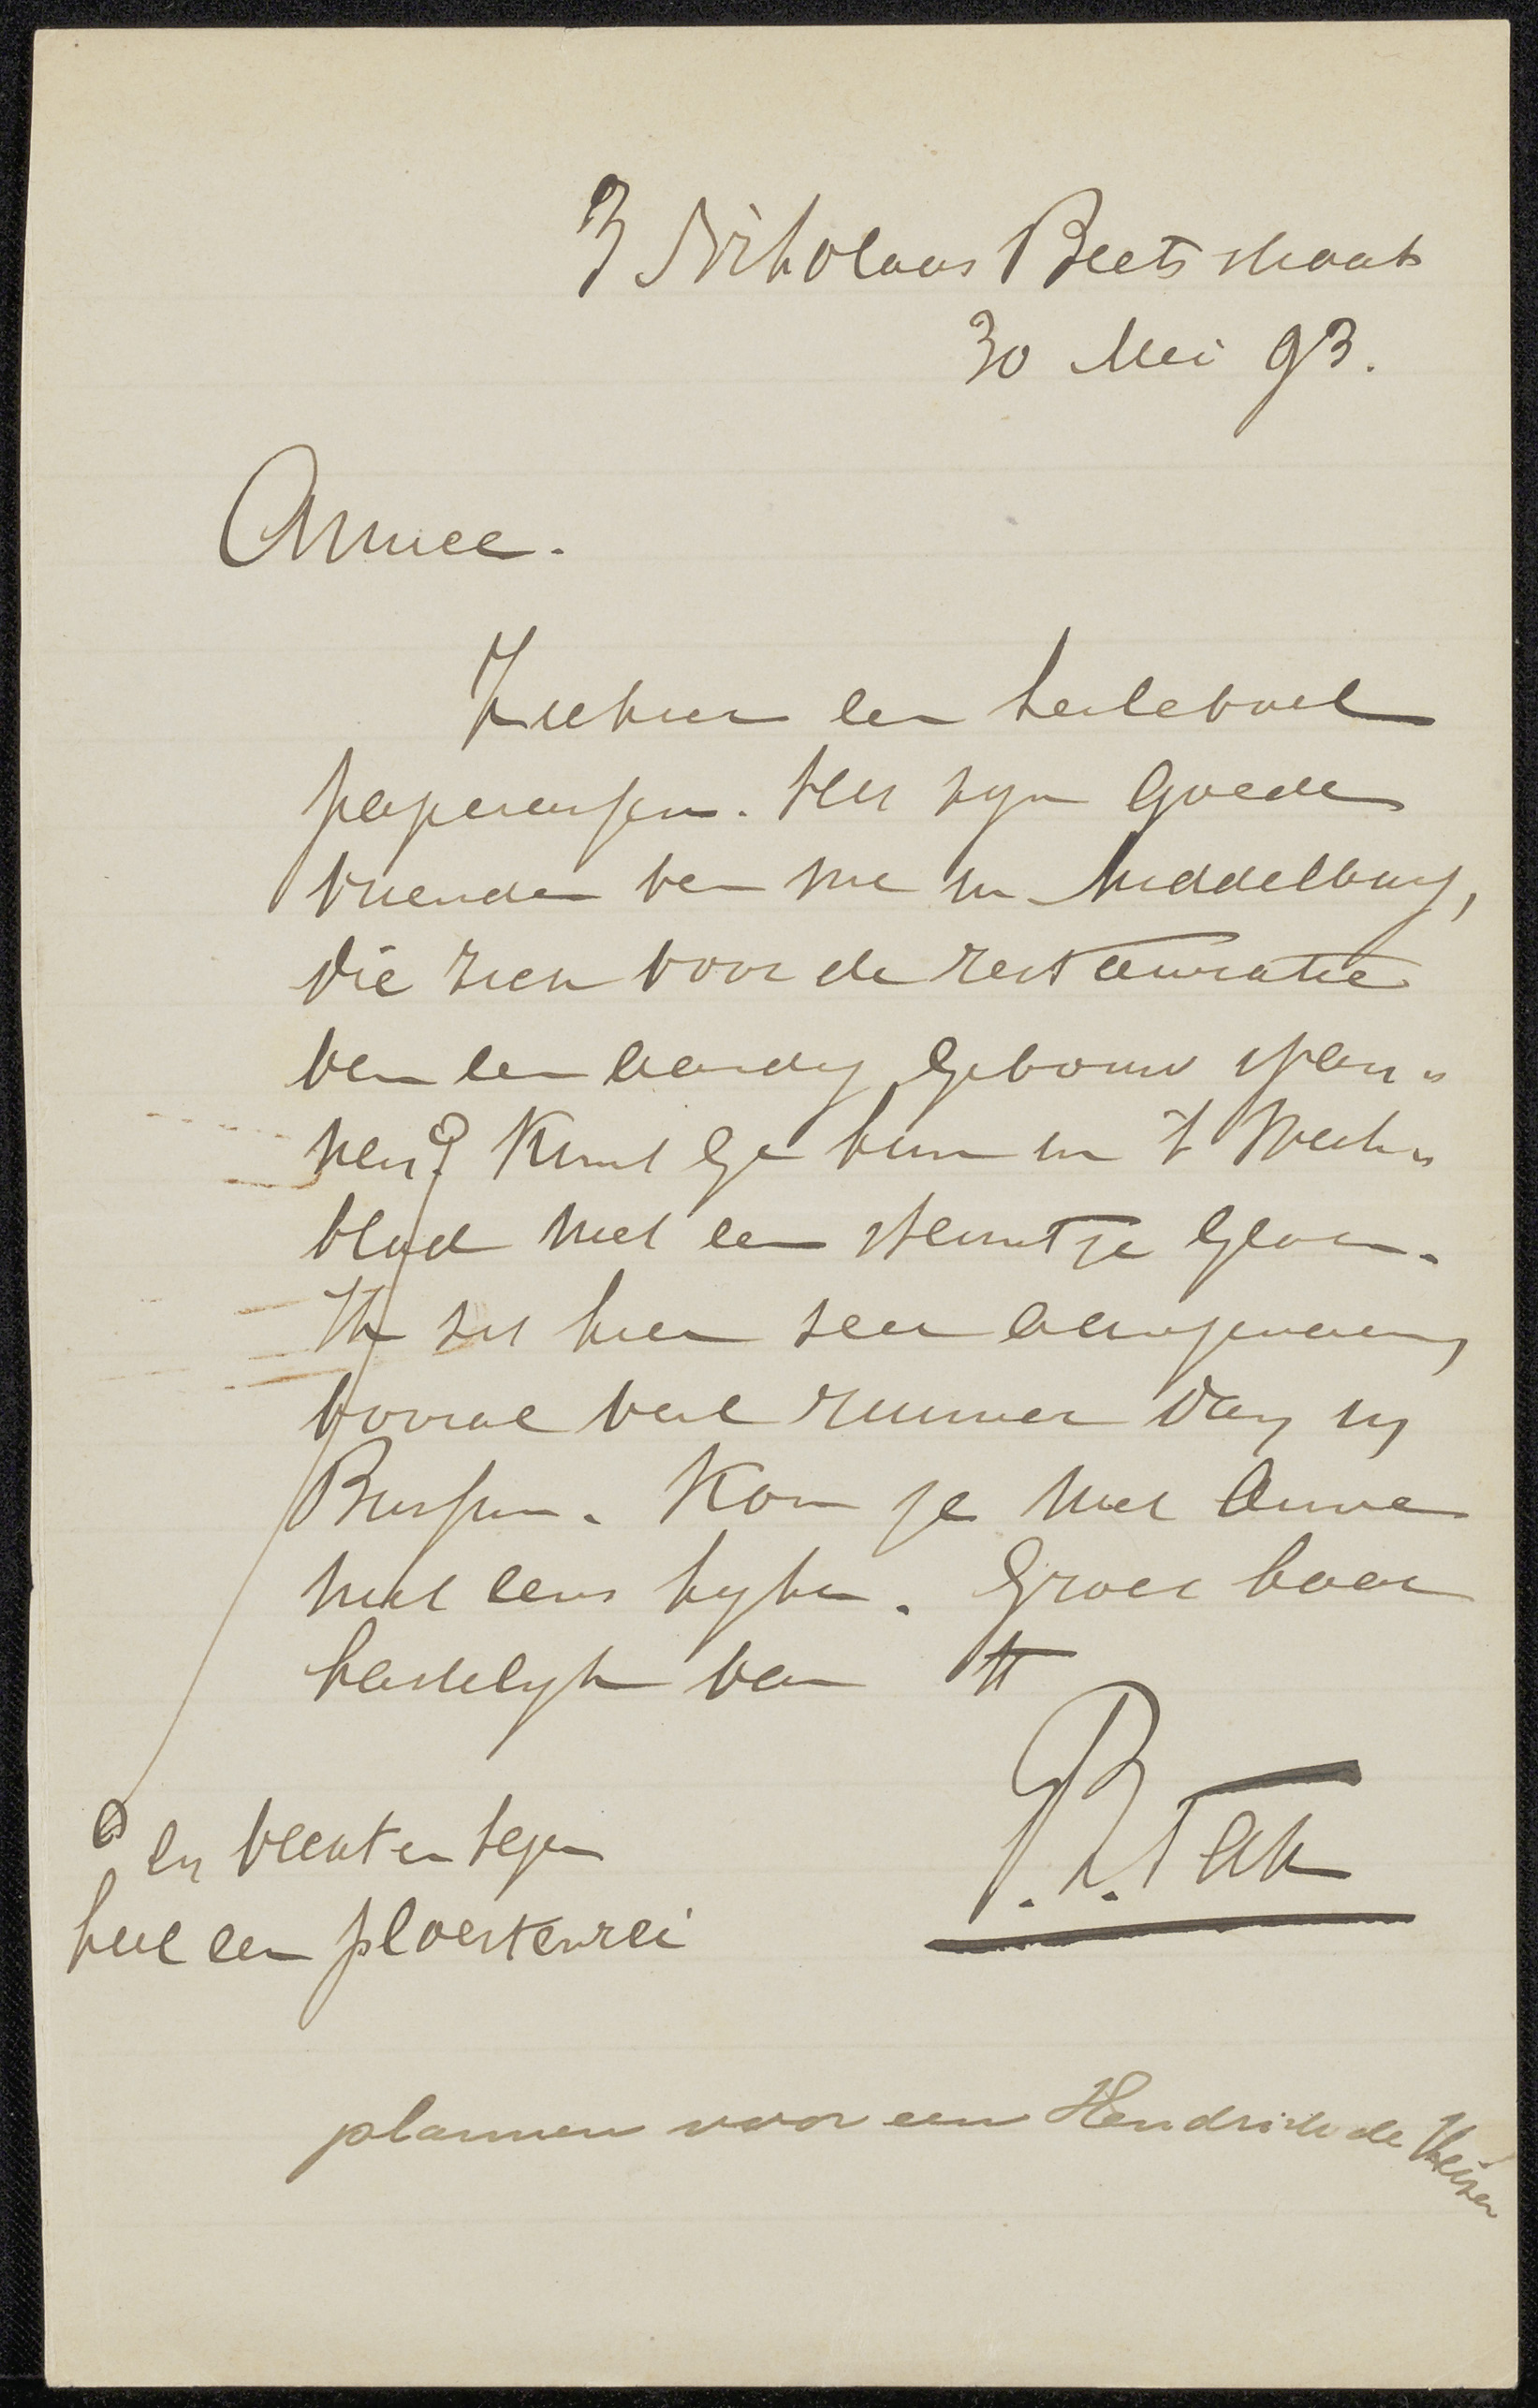 3 Nikolaas Beetsstraat
30 Mei 93.
Amice.
Ziehier een heeleboel
paperassen. Het zyn goede
vrienden van me in Middelburg,
die zich voor de restauratie
van een aardig gebouw span„
nen. Kunt ge hun in 't Week„
blad met een steuntje
Ik zit hier zeer aangenaam,
vooral veel ruimer dan in
Bussum. Kom je met
niet eens kyken. Groet haar
hartelyk van tt
P. L. Tak
en vechten tegen
heel een ploertenrei
plannen voor een Hendrick de Keizer